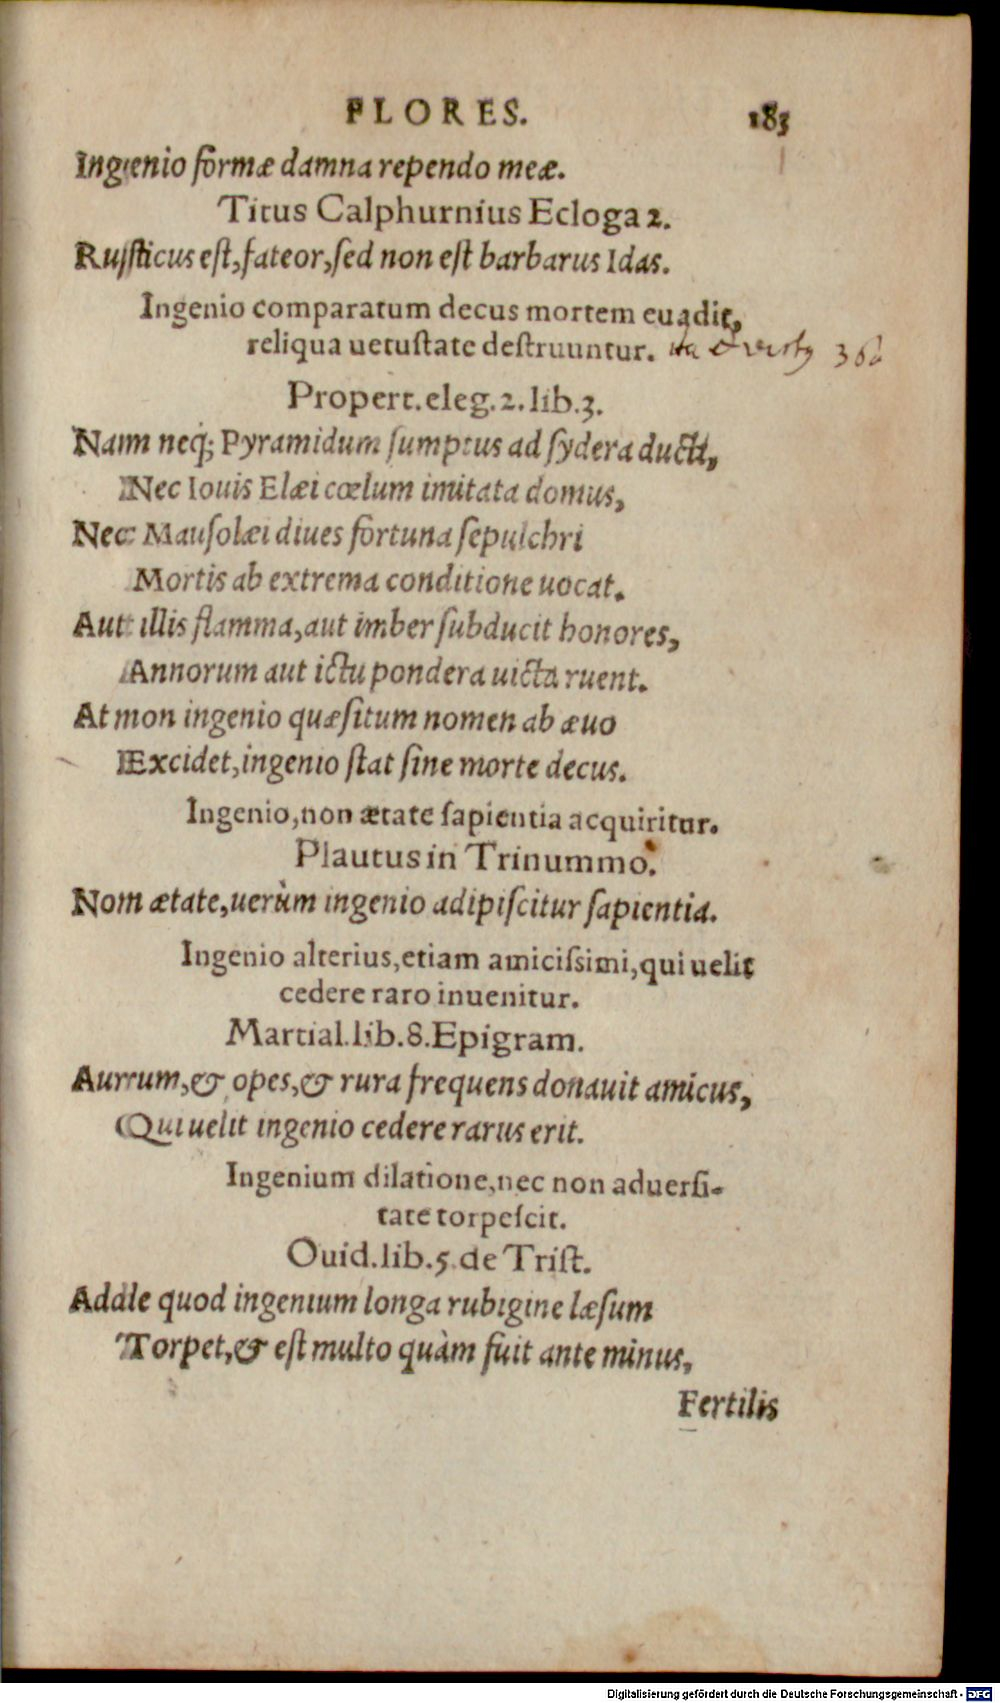 FLORES. 183
Ingenio formæ damna rependo meæ.
Titus Calphurnius Ecloga 2.
Rusticus est, fateor, sed non est barbarus Idas.
Ingenio comparatum decus mortem euadit,
reliqua uetustate destruuntur. 362
Propert. eleg. 2. lib. 3.
Nam neq; Pyramidum sumptus ad sydera ducti,
Nec Iouis Elæi cœlum imitata domus,
Nec Mausolæi diues fortuna sepulchri
Mortis ab extrema conditione uocat.
Aut illis flamma, aut imber subducit honores,
Annorum aut ictu pondera uicta ruent.
At non ingenio quæsitum nomen ab æuo
Excidet, ingenio stat sine morte decus.
Ingenio, non ætate sapientia acquiritur.
Plautus in Trinummo.
Non ætate, uerùm ingenio adipiscitur sapientia.
Ingenio alterius, etiam amicissimi, qui uelit
cedere raro inuenitur.
Martial. lib. 8. Epigram.
Aurum, & opes, & rura frequens donauit amicus,
Qui uelit ingenio cedere rarus erit.
Ingenium dilatione, nec non aduersi-
tate torpescit.
Ouid. lib. 5 de Trist.
Adde quod ingenium longa rubigine læsum
Torpet, & est multo quàm fuit ante minus,
Fertilis
Digitalisierung gefördert durch die Deutsche Forschungsgemeinschaft - DFG